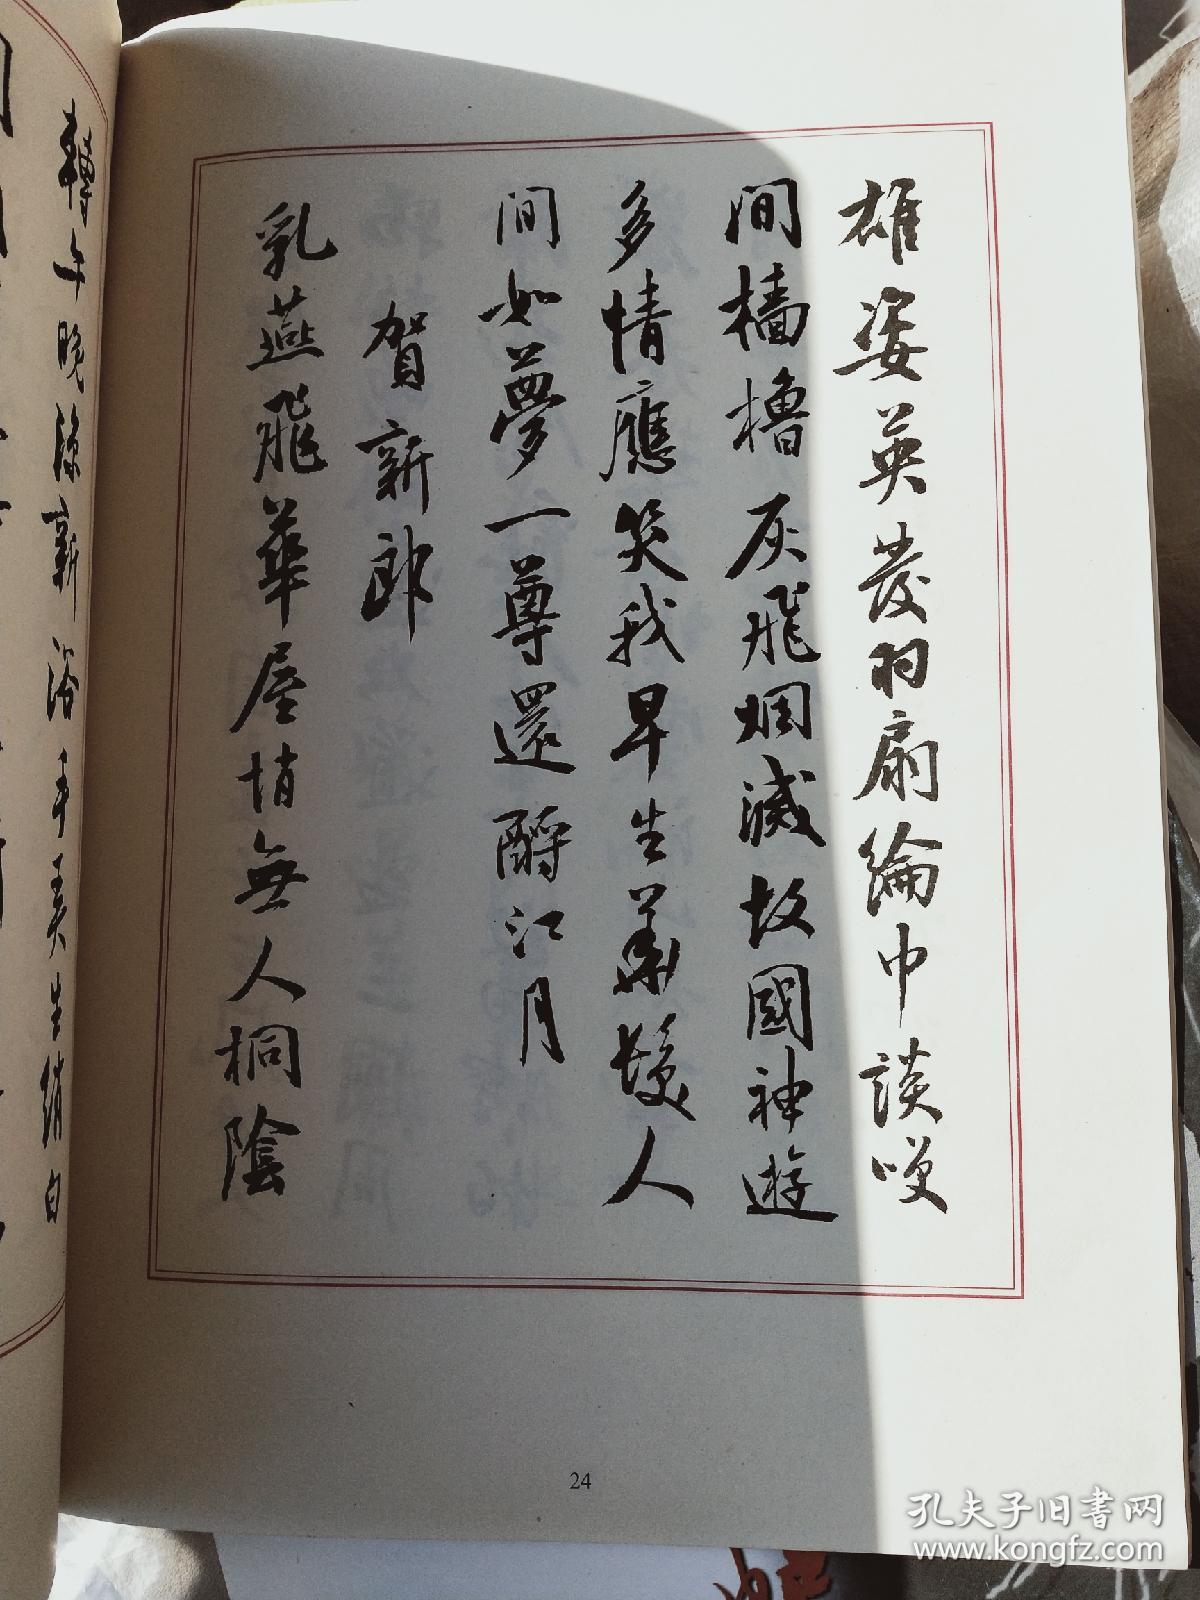 雄姿英發羽扇綸巾談笑
間檣櫓灰飛烟滅故國神遊
多情應笑我早生華髮人
間如夢一尊還酹江月
賀新郎
乳燕飛華屋悄無人桐陰
轉午晚涼新浴手弄生綃白
24
孔夫子旧书网
www.kongfz.com